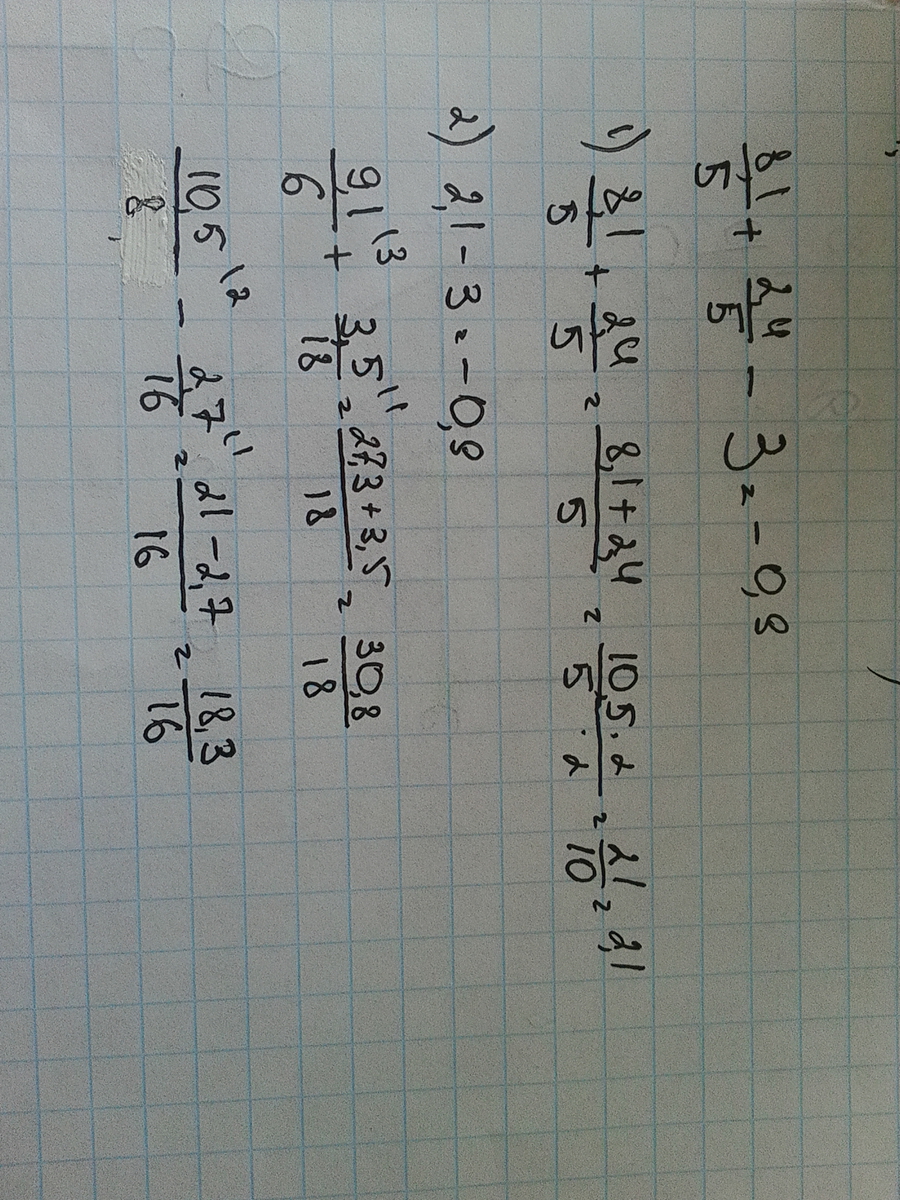 8,1/5 + 2,4/5 - 3 = -0,9
1) 8,1/5 + 2,4/5 = 8,1+2,4/5 = 10,5·2/5·2 = 21/10 = 2,1
2) 2,1 - 3 = -0,9
9,1\3/6 + 3,5\1/18 = 27,3+3,5/18 = 30,8/18
10,5\2/8 - 2,7\1/16 = 21-2,7/16 = 18,3/16